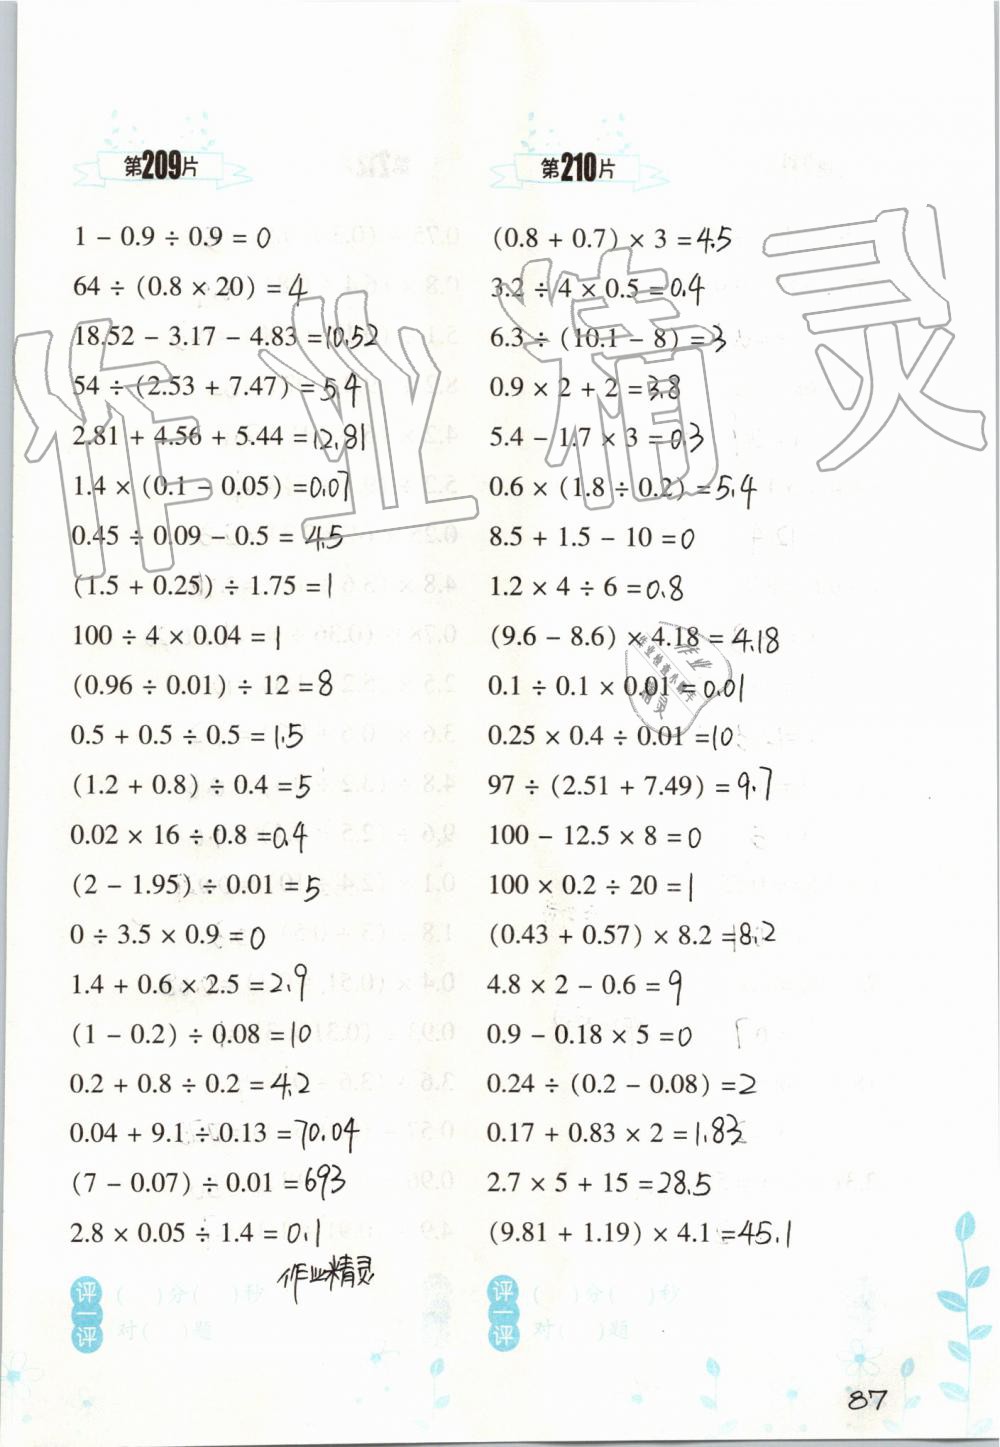 第209片
1 − 0.9 ÷ 0.9 = 0
64 ÷ (0.8 × 20) = 4
18.52 − 3.17 − 4.83 = 10.52
54 ÷ (2.53 + 7.47) = 5.4
2.81 + 4.56 + 5.44 = 12.81
1.4 × (0.1 − 0.05) = 0.07
0.45 ÷ 0.09 − 0.5 = 4.5
(1.5 + 0.25) ÷ 1.75 = 1
100 ÷ 4 × 0.04 = 1
(0.96 ÷ 0.01) ÷ 12 = 8
0.5 + 0.5 ÷ 0.5 = 1.5
(1.2 + 0.8) ÷ 0.4 = 5
0.02 × 16 ÷ 0.8 = 0.4
(2 − 1.95) ÷ 0.01 = 5
0 ÷ 3.5 × 0.9 = 0
1.4 + 0.6 × 2.5 = 2.9
(1 − 0.2) ÷ 0.08 = 10
0.2 + 0.8 ÷ 0.2 = 4.2
0.04 + 9.1 ÷ 0.13 = 70.04
(7 − 0.07) ÷ 0.01 = 693
2.8 × 0.05 ÷ 1.4 = 0.1
作业精灵
评一评
( )分( )秒
对( )题
第210片
(0.8 + 0.7) × 3 = 4.5
3.2 ÷ 4 × 0.5 = 0.4
6.3 ÷ (10.1 − 8) = 3
0.9 × 2 + 2 = 3.8
5.4 − 1.7 × 3 = 0.3
0.6 × (1.8 ÷ 0.2) = 5.4
8.5 + 1.5 − 10 = 0
1.2 × 4 ÷ 6 = 0.8
(9.6 − 8.6) × 4.18 = 4.18
0.1 ÷ 0.1 × 0.01 = 0.01
0.25 × 0.4 ÷ 0.01 = 10
97 ÷ (2.51 + 7.49) = 9.7
100 − 12.5 × 8 = 0
100 × 0.2 ÷ 20 = 1
(0.43 + 0.57) × 8.2 = 8.2
4.8 × 2 − 0.6 = 9
0.9 − 0.18 × 5 = 0
0.24 ÷ (0.2 − 0.08) = 2
0.17 + 0.83 × 2 = 1.83
2.7 × 5 + 15 = 28.5
(9.81 + 1.19) × 4.1 = 45.1
评一评
( )分( )秒
对( )题
87
作业精灵